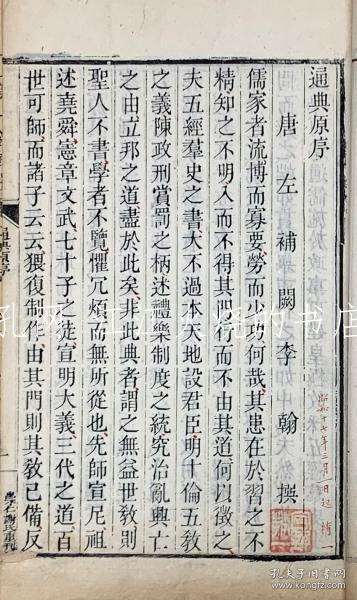 通典原序
唐左補闕李翰撰
儒家者流博而寡要勞而少功何哉其患在於習之不
精知之不明入而不得其門行而不由其道何以徵之
夫五經羣史之書大不過本天地設君臣明十倫五敎
之義陳政刑賞罰之柄述禮樂制度之統究治亂興亡
之由立邦之道盡於此矣非此典者謂之無益世敎則
聖人不書學者不覽懼冗煩而無所從也先師宣尼祖
述堯舜憲章文武七十子之徒宣明大義三代之道百
世可師而諸子云云猥復制作由其門則其敎已備反
通典原序
崇仁謝氏重刊